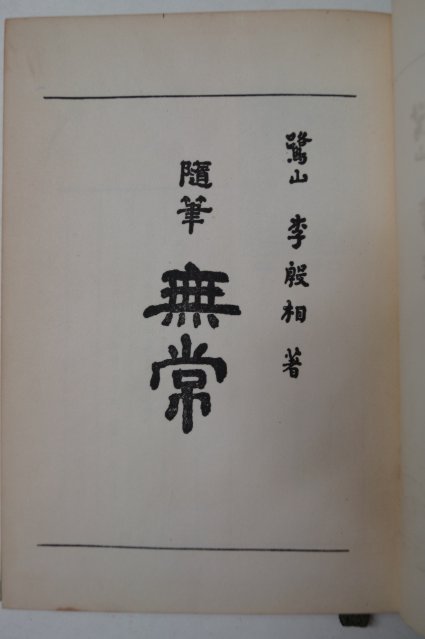 鷺山 李殷相 著
隨筆 無常